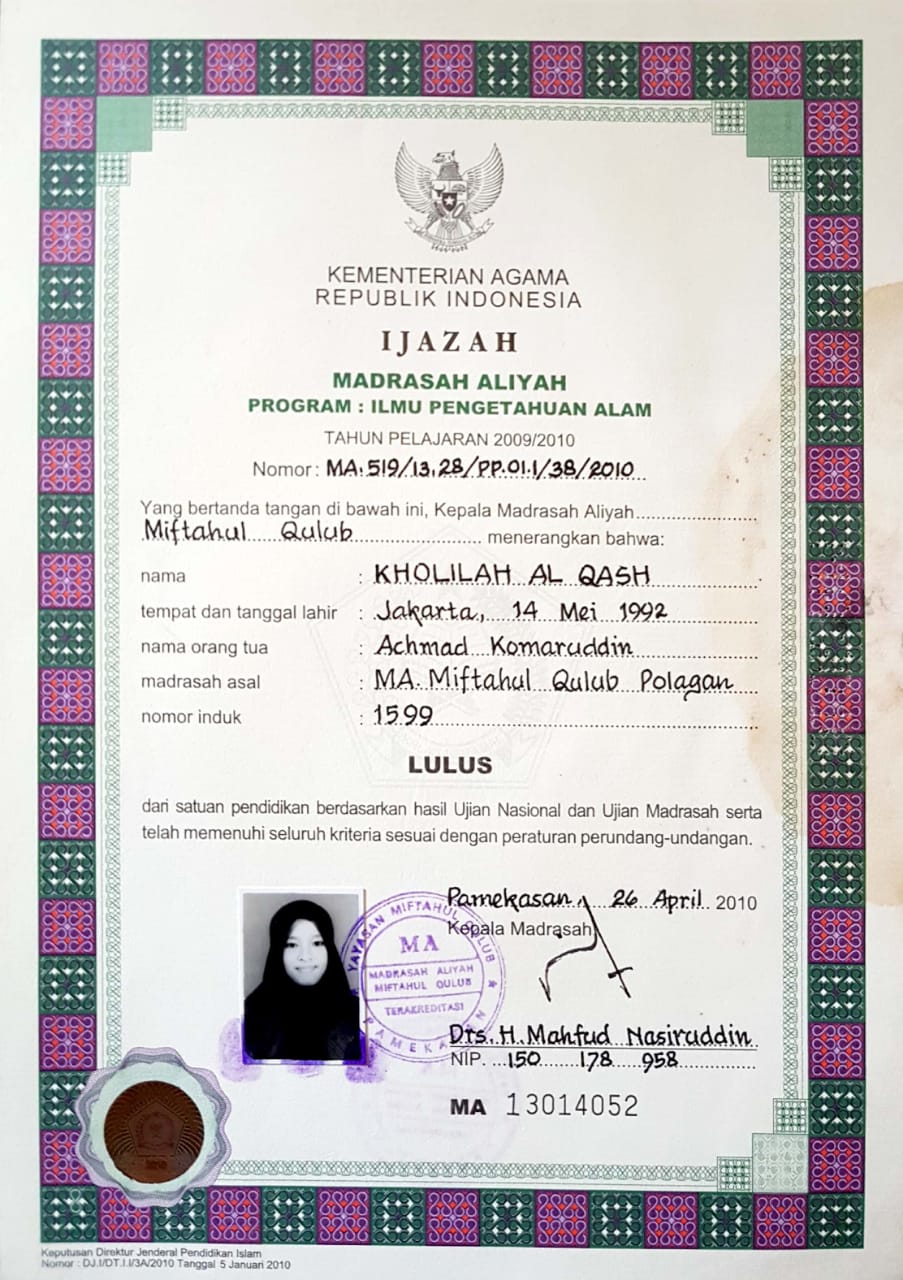 KEMENTERIAN AGAMA
REPUBLIK INDONESIA
IJAZAH
MADRASAH ALIYAH
PROGRAM : ILMU PENGETAHUAN ALAM
TAHUN PELAJARAN 2009/2010
Nomor : MA. 519/13.28/PP.01.1/38/2010
Yang bertanda tangan di bawah ini, Kepala Madrasah Aliyah
Miftahul Qulub menerangkan bahwa:
nama : KHOLILAH AL QASH
tempat dan tanggal lahir : Jakarta, 14 Mei 1992
nama orang tua : Achmad Komaruddin
madrasah asal : MA. Miftahul Qulub Polagan
nomor induk : 1599
LULUS
dari satuan pendidikan berdasarkan hasil Ujian Nasional dan Ujian Madrasah serta
telah memenuhi seluruh kriteria sesuai dengan peraturan perundang-undangan.
Pamekasan, 26 April 2010
Kepala Madrasah
YAYASAN MIFTAHUL QULUB
MA
MADRASAH ALIYAH
MIFTAHUL QULUB
TERAKREDITASI
PAMEKASAN
Drs. H. Mahfud Nasiruddin
NIP. 150 178 958
MA 13014052
Keputusan Direktur Jenderal Pendidikan Islam
Nomor : DJ.I/DT.I.I/3A/2010 Tanggal 5 Januari 2010